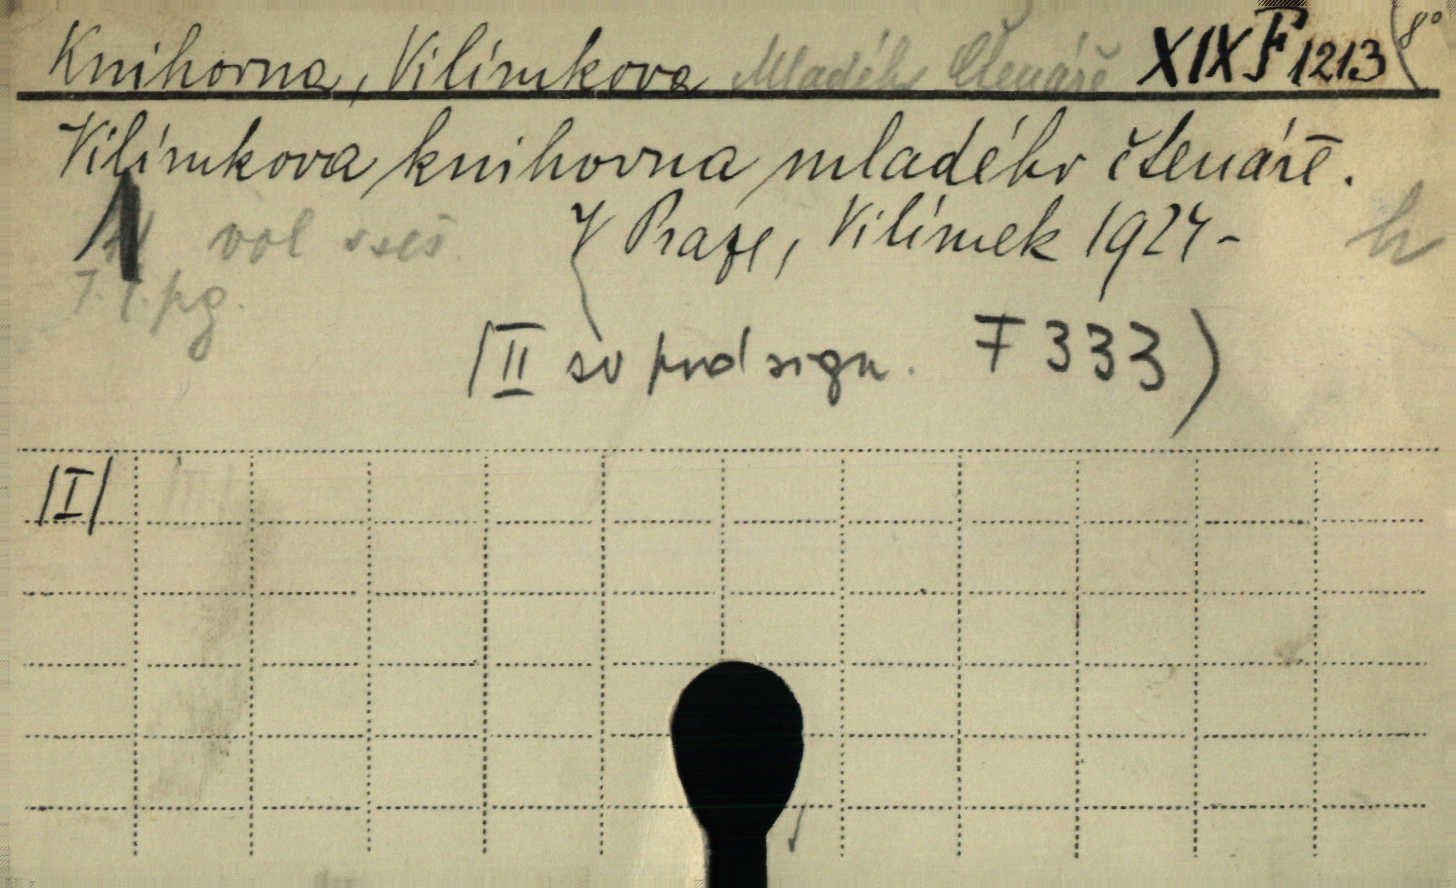 Knihovna, Vilímkova Mladého Čtenáře XIX F 1213 8°
Vilímkova knihovna mladého čtenáře.
vol V Praze, Vilímek 1924 -
(II sv pod sign. F 333)
/I/